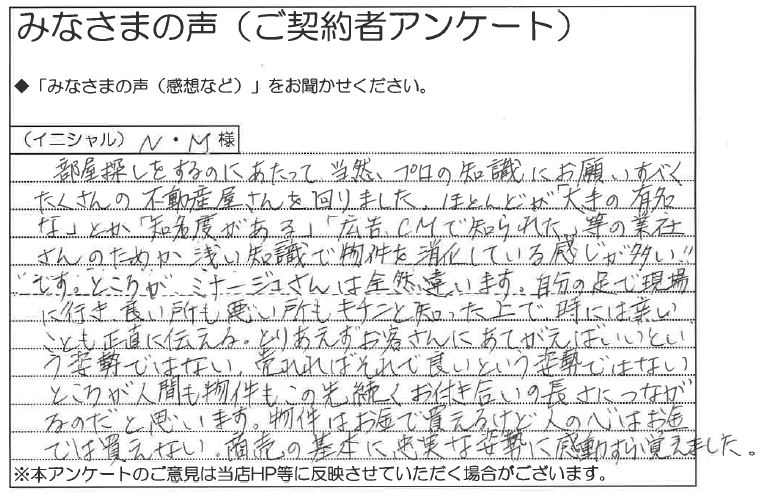 みなさまの声（ご契約者アンケート）
◆「みなさまの声（感想など）」をお聞かせください。
（イニシャル）N・M様
部屋探しをするのにあたって当然、プロの知識にお願いすべく
たくさんの不動産屋さんを回りました。ほとんどが「大手の有名
な」とか「知名度がある」「広告、CMで知られた」等の業社
さんのためか浅い知識で物件を消化している感じが多い!!
です。ところが、ミナージュさんは全然違います。自分の足で現場
に行き良い所も悪い所もキチンと知った上で時には辛い
ことも正直に伝える。とりあえずお客さんにあてがえばいいとい
う姿勢ではない、売れればそれで良いという姿勢ではない
ところが人間も物件もこの先続くお付き合いの長さにつなが
るのだと思います。物件はお金で買えるけど人の心はお金
では買えない。商売の基本に忠実な姿勢に感動すら覚えました。
※本アンケートのご意見は当店HP等に反映させていただく場合がございます。